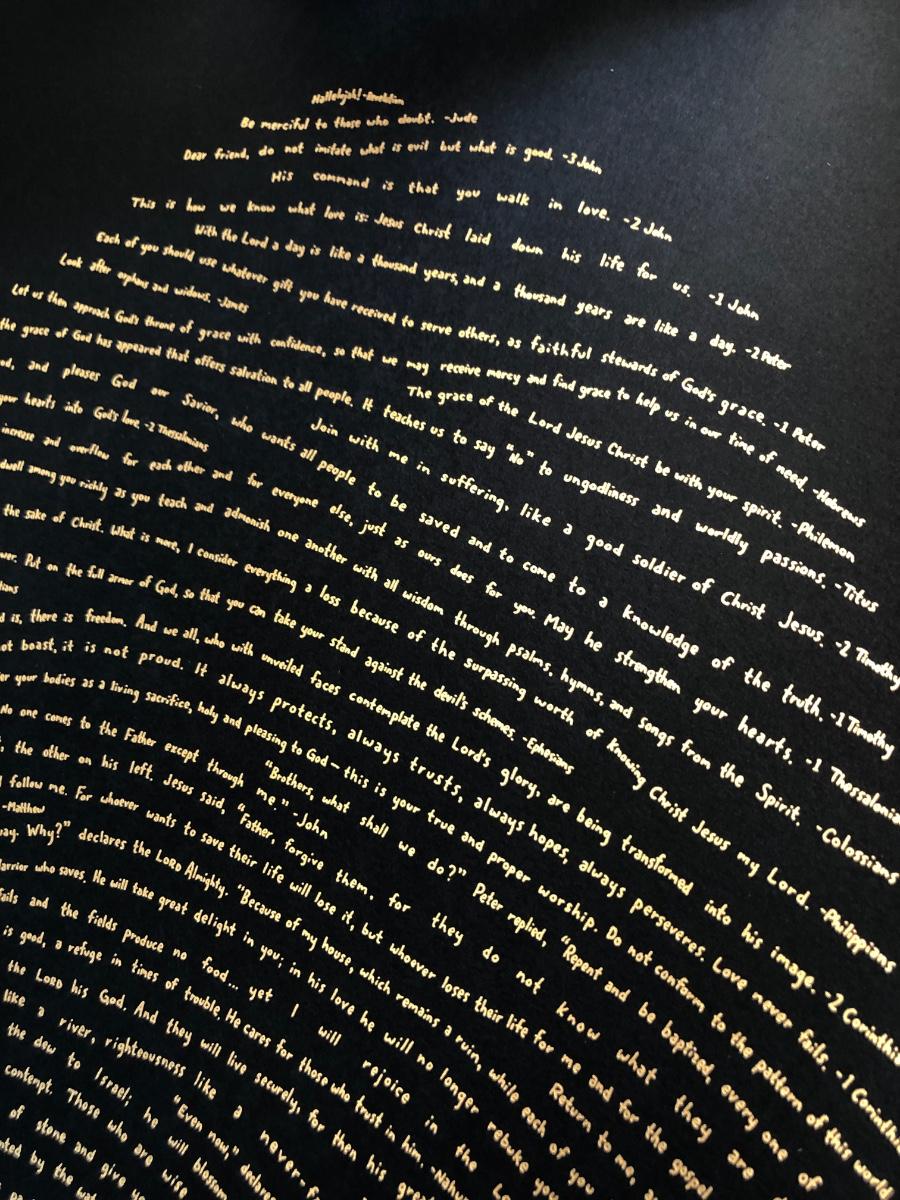 Hallelujah! -Revelation
Be merciful to those who doubt. -Jude
Dear friend, do not imitate what is evil but what is good. -3 John
His command is that you walk in love. -2 John
This is how we know what love is: Jesus Christ laid down his life for us. -1 John
With the Lord a day is like a thousand years, and a thousand years are like a day. -2 Peter
Each of you should use whatever gift you have received to serve others, as faithful stewards of God's grace. -1 Peter
Look after orphans and widows. -James
Let us then approach God's throne of grace with confidence, so that we may receive mercy and find grace to help us in our time of need. -Hebrews
The grace of the Lord Jesus Christ be with your spirit. -Philemon
the grace of God has appeared that offers salvation to all people. It teaches us to say "No" to ungodliness and worldly passions. -Titus
Join with me in suffering, like a good soldier of Christ Jesus. -2 Timothy
and pleases God our Savior, who wants all people to be saved and to come to a knowledge of the truth. -1 Timothy
your hearts into God's love. -2 Thessalonians
increase and overflow for each other and for everyone else, just as ours does for you. May he strengthen your hearts. -1 Thessalonia
dwell among you richly as you teach and admonish one another with all wisdom through psalms, hymns, and songs from the Spirit. -Colossians
the sake of Christ. What is more, I consider everything a loss because of the surpassing worth of knowing Christ Jesus my Lord. -Philippians
Put on the full armor of God, so that you can take your stand against the devil's schemes. -Ephesians
is, there is freedom. And we all, who with unveiled faces contemplate the Lord's glory, are being transformed into his image. -2 Corinthia
not boast, it is not proud. It always protects, always trusts, always hopes, always perseveres. Love never fails. -1 Corinthi
your bodies as a living sacrifice, holy and pleasing to God – this is your true and proper worship. Do not conform to the pattern of this world
"Brothers, what shall we do?" Peter replied, "Repent and be baptized, every one of
No one comes to the Father except through me." -John
the other on his left. Jesus said, "Father, forgive them, for they do not know what they are
follow me. For whoever wants to save their life will lose it, but whoever loses their life for me and for the gospel
-Matthew
Why?" declares the LORD Almighty. "Because of my house, which remains a ruin, while each of you
Return to me,
Warrior who saves. He will take great delight in you; in his love he will no longer rebuke you
fails and the fields produce no food... yet I will rejoice in the
is good, a refuge in times of trouble. He cares for those who trust in him. -Nahum
the LORD his God. And they will live securely, for then his
like a river, righteousness like a never-
"Even now,"
the dew to Israel; he will blossom
contempt. Those who are wise
of stone and give
by the